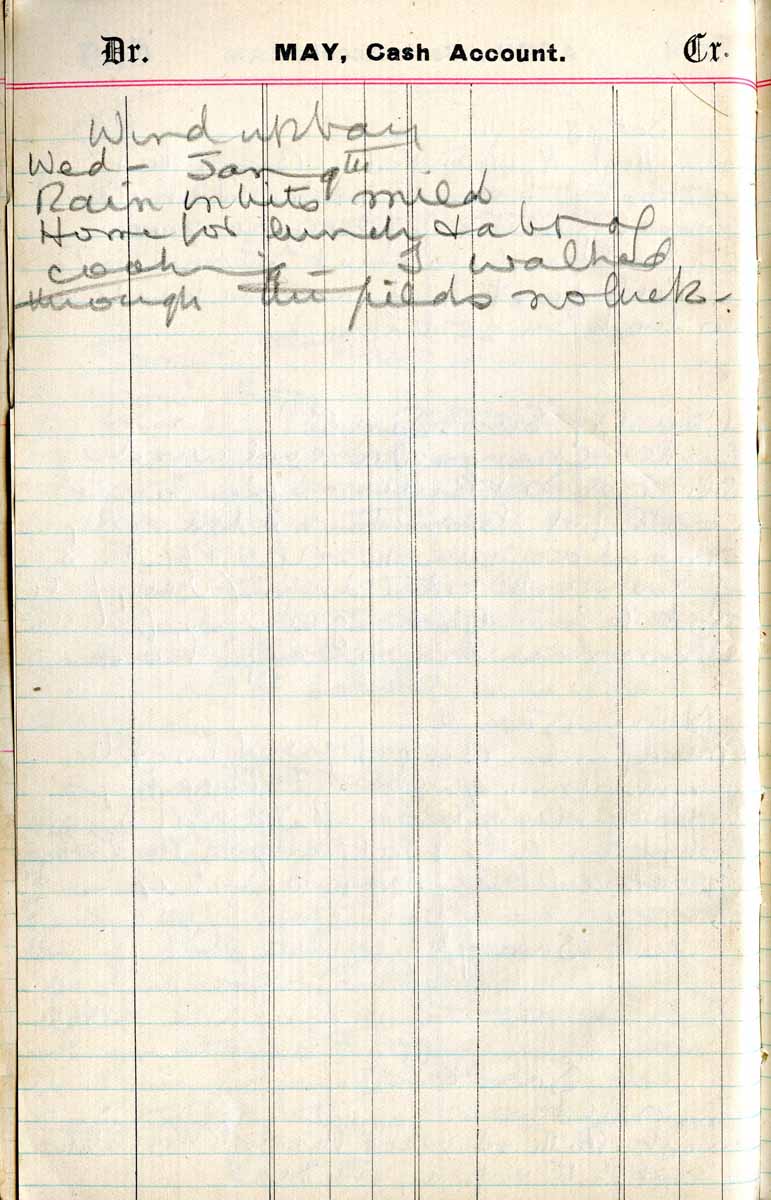 Dr. MAY, Cash Account. Cr.
Wind up day
Wed - Jan 9th
Rain in bits mild
Home for lunch & a bit of
cooking - I walked
through the fields no luck -